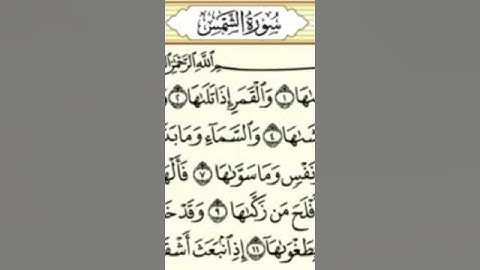 سُورَةُ الشَّمْسِ
اللَّهِ الرَّحْمَٰنِ
ـَٰهَا ١ وَٱلْقَمَرِ إِذَا تَلَىٰهَا ٢ وَ
شَىٰهَا ٤ وَٱلسَّمَآءِ وَمَا بَنَ
نَفْسٍ وَمَا سَوَّىٰهَا ٧ فَأَلْهَ
فْلَحَ مَن زَكَّىٰهَا ٩ وَقَدْ خَ
بِطَغْوَىٰهَآ ١١ إِذِ ٱنۢبَعَثَ أَشْقَ